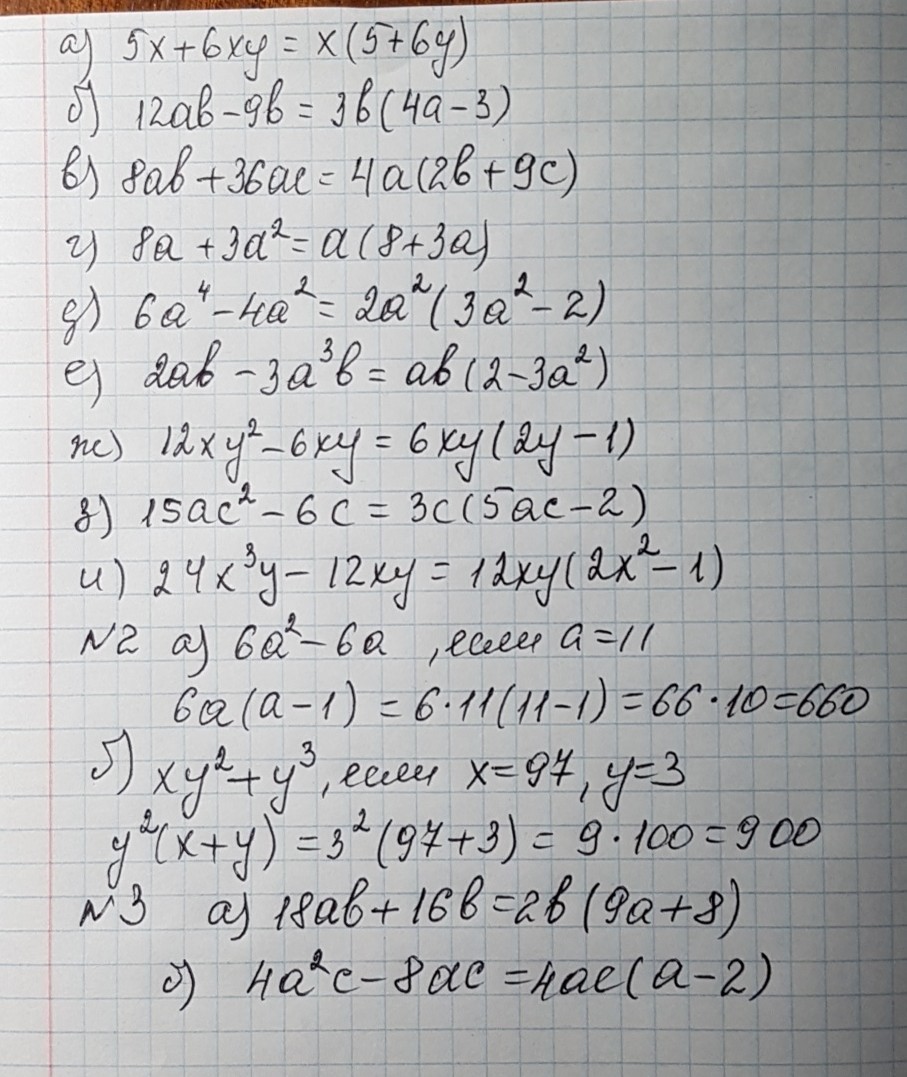 а) 5x+6xy = x(5+6y)
б) 12ab-9b = 3b(4a-3)
в) 8ab+36ac = 4a(2b+9c)
г) 8a+3a² = a(8+3a)
д) 6a⁴-4a² = 2a²(3a²-2)
е) 2ab-3a³b = ab(2-3a²)
ж) 12xy²-6xy = 6xy(2y-1)
з) 15ac²-6c = 3c(5ac-2)
и) 24x³y-12xy = 12xy(2x²-1)
№2 а) 6a²-6a, если a=11
6a(a-1) = 6·11(11-1) = 66·10=660
б) xy²+y³, если x=97, y=3
y²(x+y) = 3²(97+3) = 9·100=900
№3 а) 18ab+16b=2b(9a+8)
б) 4a²c-8ac=4ac(a-2)